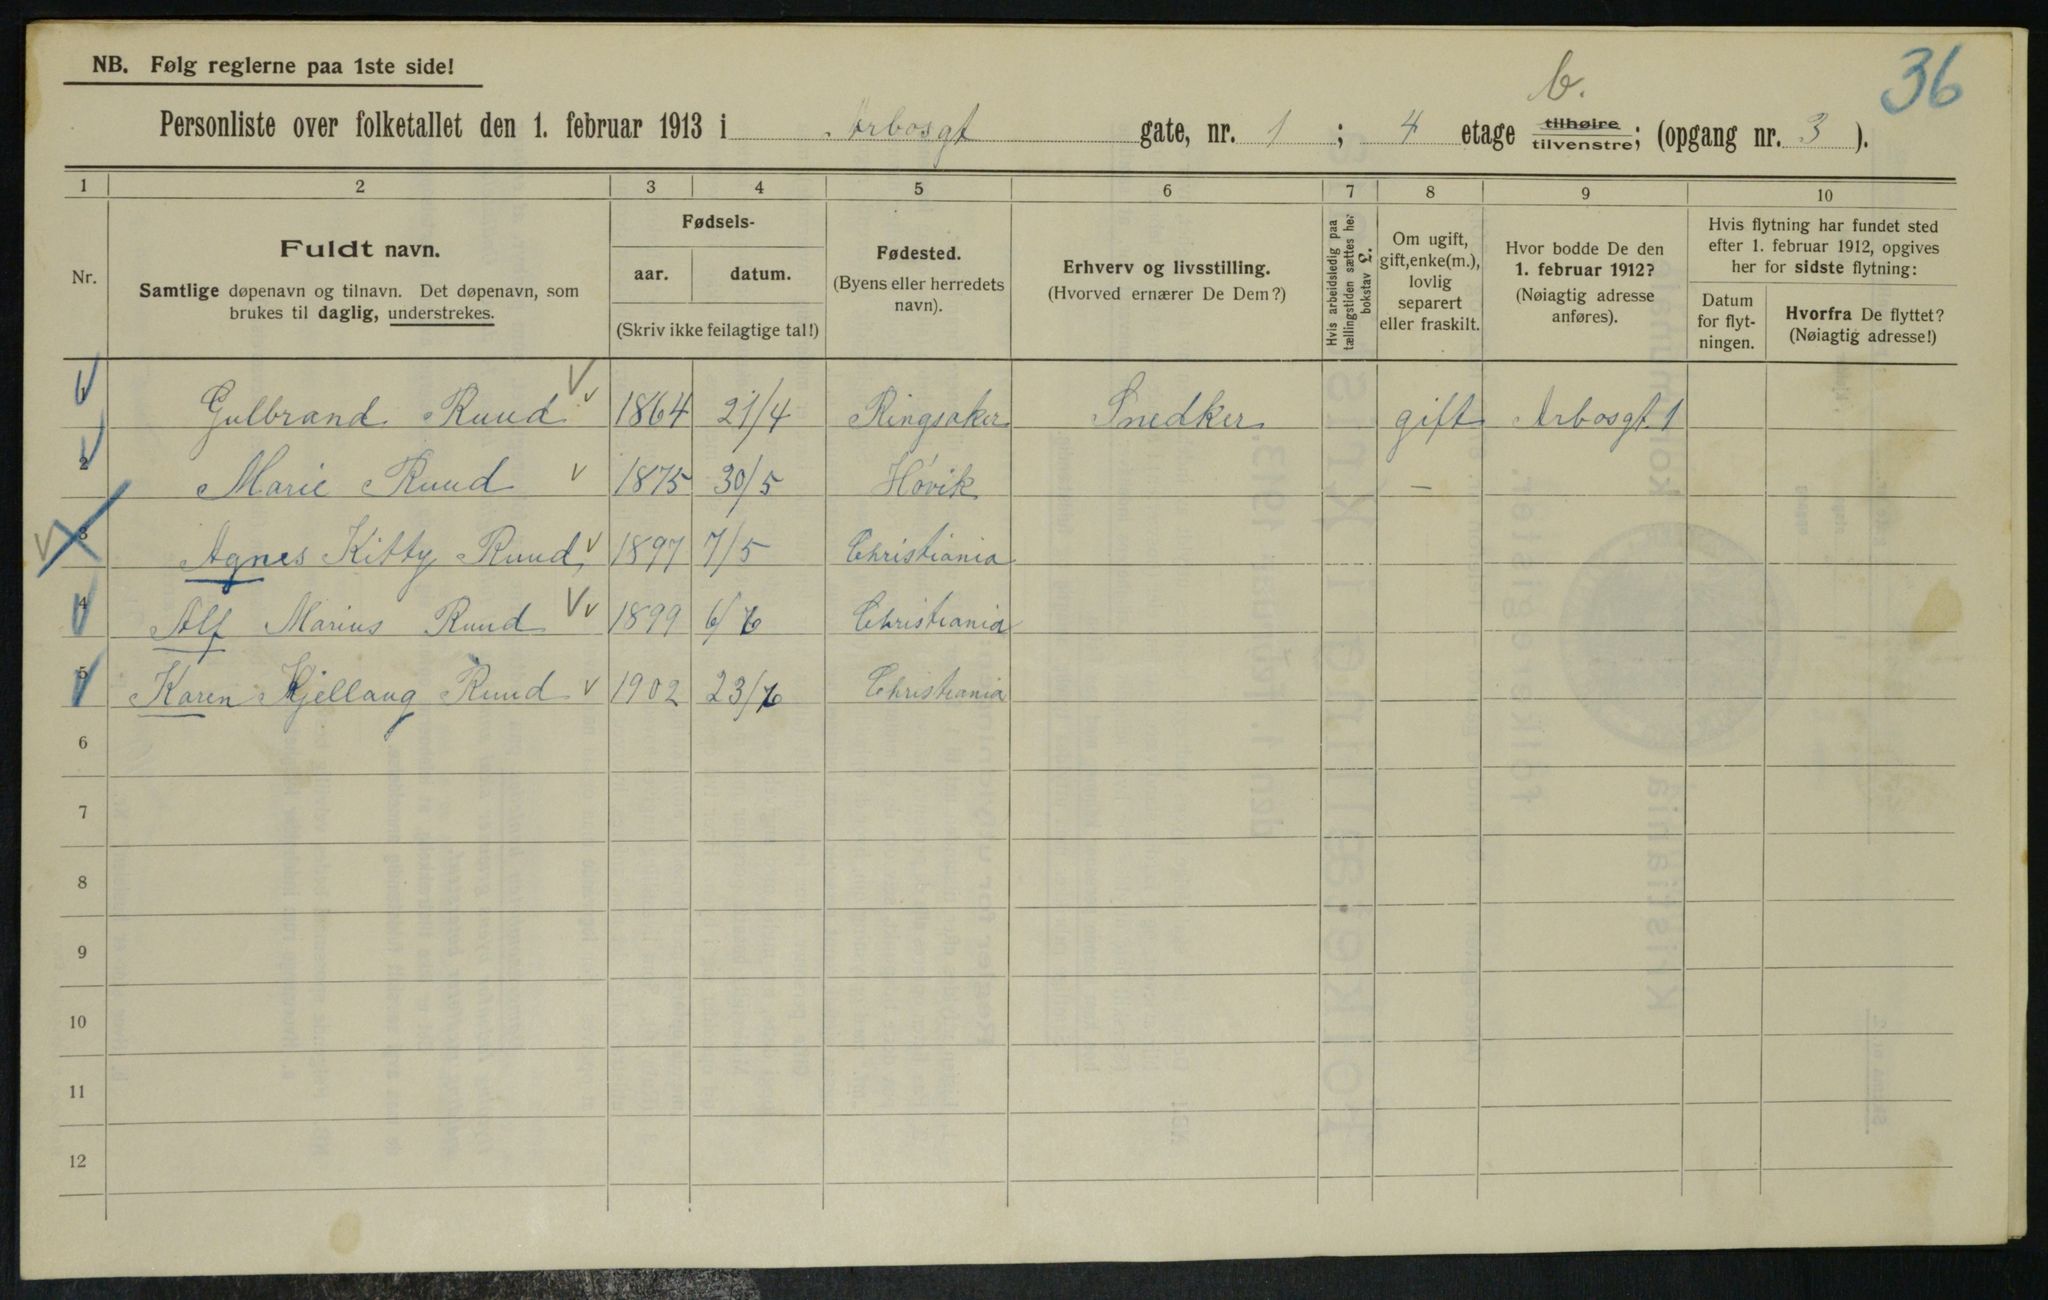 36
NB. Følg reglerne paa 1ste side!
b.
Personliste over folketallet den 1. februar 1913 i Arbosgt gate, nr. 1 ; 4 etage tilhøire tilvenstre; (opgang nr. 3 ).
1 2 3 4 5 6 7 8 9 10
Nr.
Fuldt navn.
Samtlige døpenavn og tilnavn. Det døpenavn, som
brukes til daglig, understrekes.
Fødsels-
aar. datum.
(Skriv ikke feilagtige tal!)
Fødested.
(Byens eller herredets
navn).
Erhverv og livsstilling.
(Hvorved ernærer De Dem?)
Hvis arbeidsledig paa
tællingstiden sættes her
bokstav L.
Om ugift,
gift, enke(m.),
lovlig
separert
eller fraskilt.
Hvor bodde De den
1. februar 1912?
(Nøiagtig adresse
anføres).
Hvis flytning har fundet sted
efter 1. februar 1912, opgives
her for sidste flytning:
Datum
for flyt-
ningen.
Hvorfra De flyttet?
(Nøiagtig adresse!)
1 Gulbrand Ruud 1864 21/4 Ringsaker Snedker gift Arbosgt. 1
2 Marie Ruud 1875 30/5 Høvik —
3 Agnes Kitty Ruud 1897 7/5 Christiania
4 Alf Marius Ruud 1899 6/6 Christiania
5 Karen Kjellaug Ruud 1902 23/6 Christiania
6
7
8
9
10
11
12